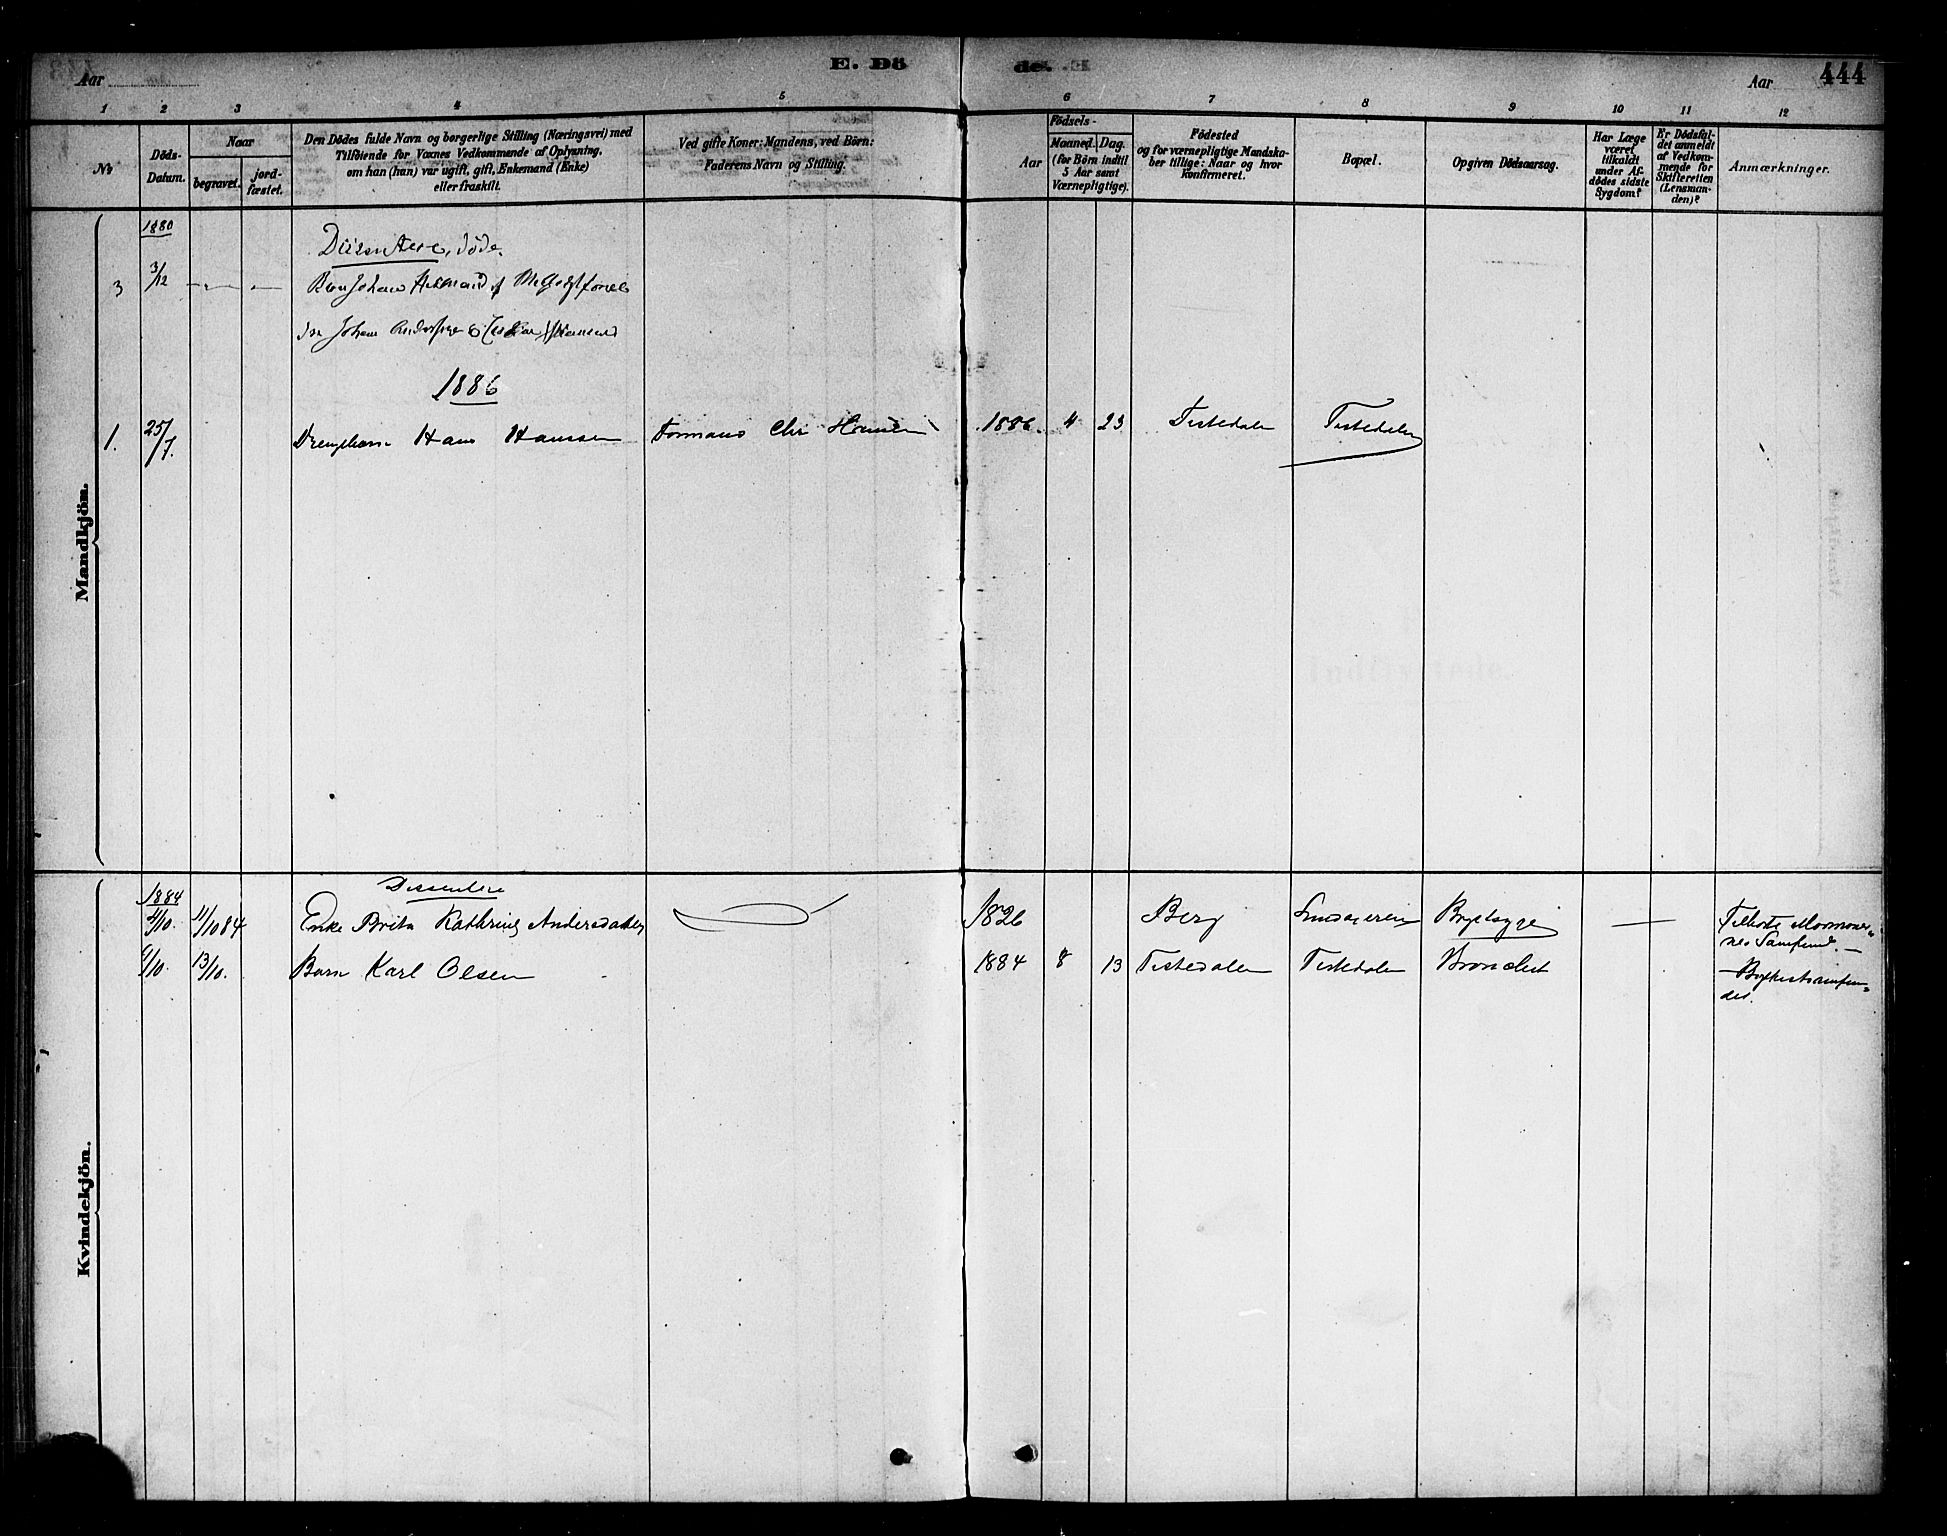 E. Dö
de.
Aar
Aar
444
1 2 3 4 5 6 7 8 9 10 11 12
No
Döds-
Datum.
Naar
begravet.
jord-
fæstet.
Den Dödes fulde Navn og borgerlige Stilling (Næringsvei) med
Tilföiende for Voxnes Vedkommende af Oplysning,
om han (hun) var ugift, gift, Enkemand (Enke)
eller fraskilt.
Ved gifte Koner: Mandens, ved Börn:
Faderens Navn og Stilling.
Födsels-
Aar
Maaned. Dag.
(for Börn indtil
5 Aar samt
Værnepligtige).
Födested
og for værnepligtige Mandska-
ber tillige: Naar og hvor
Konfirmeret.
Bopæl.
Opgiven Dödsaarsag.
Har Læge
været
tilkaldt
under Af-
dödes sidste
Sygdom?
Er Dödsfal-
det anmeldt
af Vedkom-
mende for
Skifteretten
(Lensman-
den)?
Anmærkninger.
Mandkjön.
1880
Dissentere, døde.
3 3/12
Johan
1886
1. 25/7. Drengebarn Hans Hanssen Formand Chr Hansen 1886. 4 23 Tistedalen Tistedalen
Kvindekjön.
1884
Dissentere
4/10. 11/10 84 Enke Brita Kathrine Andersdatter 1826 Berg Brystsyge Tilhørte Mormoner-
nes Samfund.
9/10. 13/10. Barn Karl Olsen 1884 8 13 Tistedalen Tistedalen Bronchit